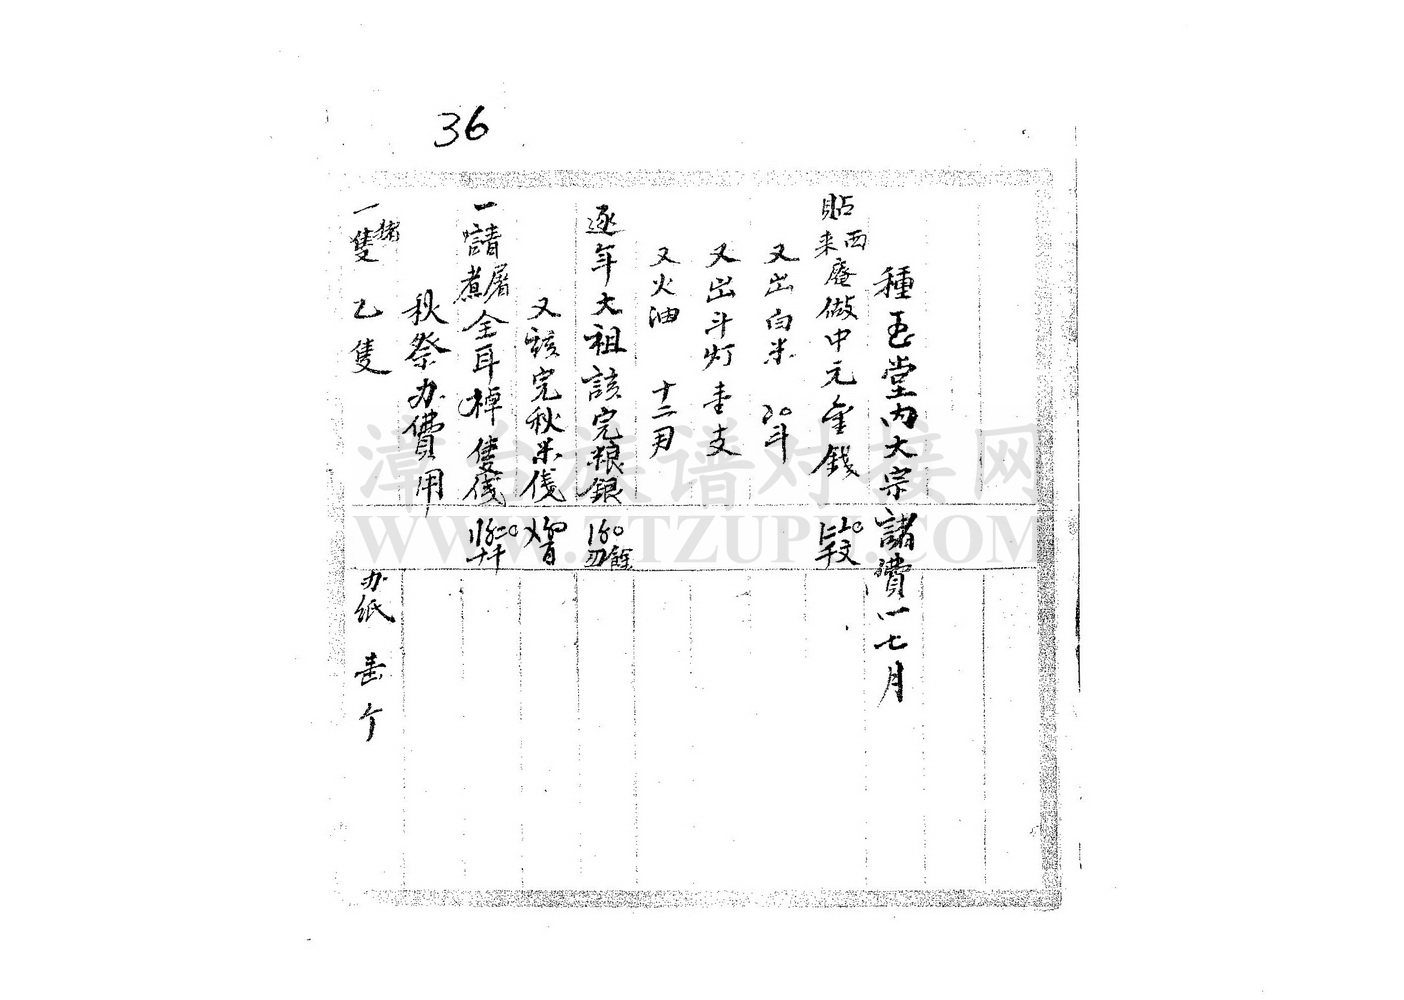 36
種玉堂内大宗諸費一七月
貼西来庵做中元金錢
又出白米 20斗
又出斗灯壹支
又火油 十二月
逐年大祖該完粮銀 餘
又該完秋米伐
一請屠煮全耳棹隻伐
秋祭办費用
一猪隻 乙隻 办紙 壹个
漳台族谱对接网
WWW.ZTZUPU.COM